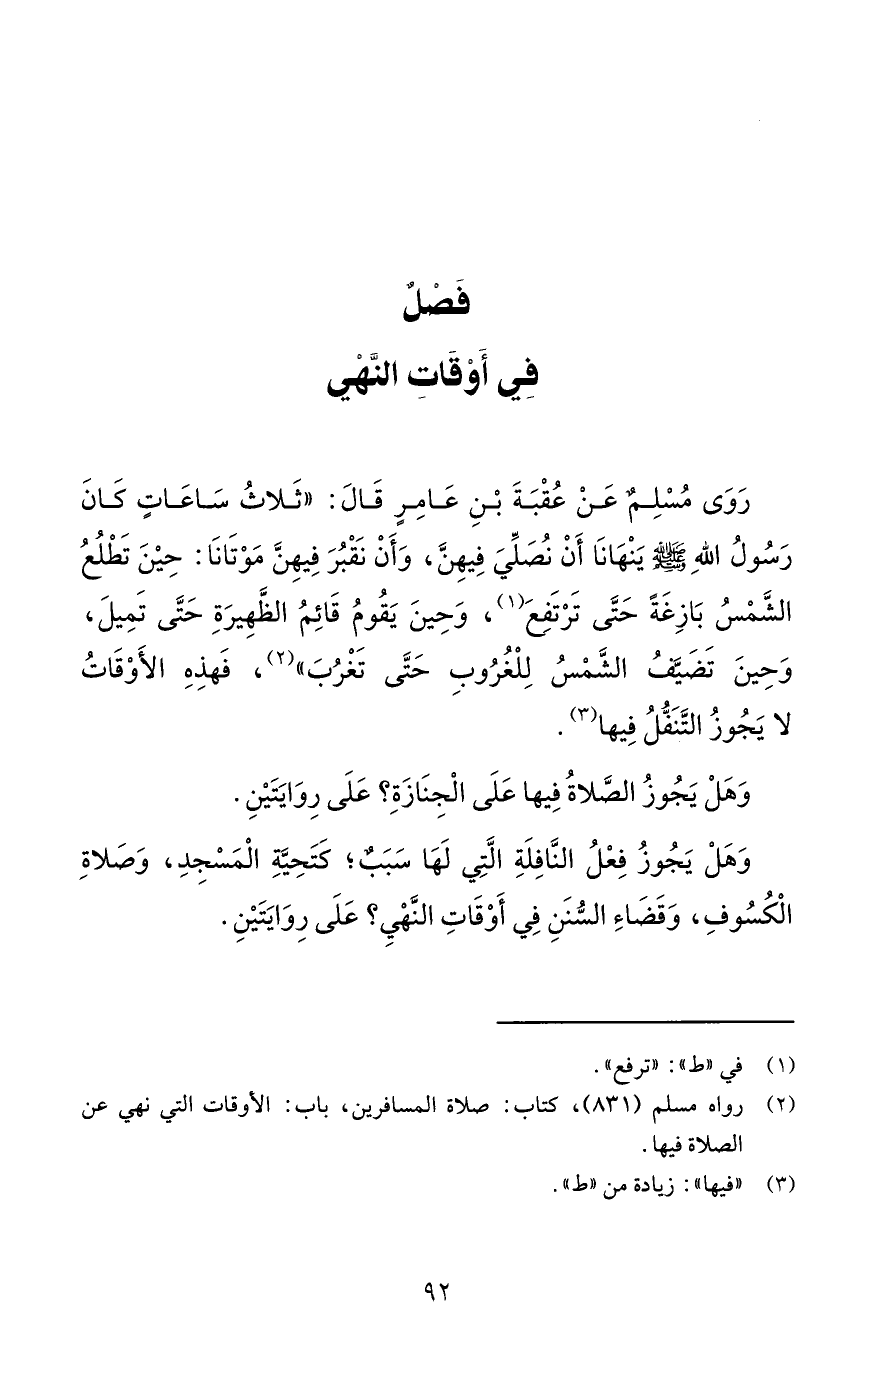 فَصْلٌ
فِي أَوْقَاتِ النَّهْيِ
رَوَى مُسْلِمٌ عَنْ عُقْبَةَ بْنِ عَامِرٍ قَالَ: «ثَلاثُ سَاعَاتٍ كَانَ
رَسُولُ اللهِ ﷺ يَنْهَانَا أَنْ نُصَلِّيَ فِيهِنَّ، وَأَنْ نَقْبُرَ فِيهِنَّ مَوْتَانَا: حِيْنَ تَطْلُعُ
الشَّمْسُ بَازِغَةً حَتَّى تَرْتَفِعَ(١)، وَحِينَ يَقُومُ قَائِمُ الظَّهِيرَةِ حَتَّى تَمِيلَ،
وَحِينَ تَضَيَّفُ الشَّمْسُ لِلْغُرُوبِ حَتَّى تَغْرُبَ»(٢)، فَهذِهِ الأَوْقَاتُ
لا يَجُوزُ التَّنَفُّلُ فِيها(٣).
وَهَلْ يَجُوزُ الصَّلاةُ فِيها عَلَى الْجِنَازَةِ؟ عَلَى رِوَايَتَيْنِ.
وَهَلْ يَجُوزُ فِعْلُ النَّافِلَةِ الَّتِي لَهَا سَبَبٌ؛ كَتَحِيَّةِ الْمَسْجِدِ، وَصَلاةِ
الْكُسُوفِ، وَقَضَاءِ السُّنَنِ فِي أَوْقَاتِ النَّهْيِ؟ عَلَى رِوَايَتَيْنِ.
(١) في «ط»: «ترفع».
(٢) رواه مسلم (٨٣١)، كتاب: صلاة المسافرين، باب: الأوقات التي نهي عن
الصلاة فيها.
(٣) «فيها»: زيادة من «ط».
٩٢